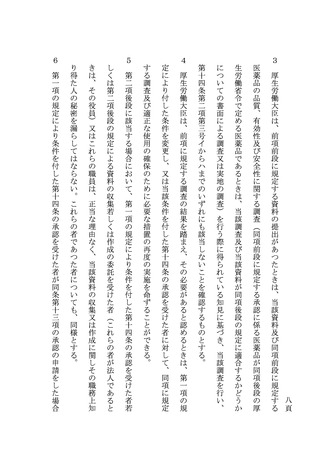 八頁
３　厚生労働大臣は、前項前段に規定する資料の提出があつたときは、当該資料及び同項前段に規定する
医薬品の品質、有効性及び安全性に関する調査（同項前段に規定する承認に係る医薬品が同項後段の厚
生労働省令で定める医薬品であるときは、当該調査及び当該資料が同項後段の規定に適合するかどうか
についての書面による調査又は実地の調査）を行う際に得られている知見に基づき、当該調査を行い、
第十四条第二項第三号イからハまでのいずれにも該当しないことを確認するものとする。
４　厚生労働大臣は、前項に規定する調査の結果を踏まえ、その必要があると認めるときは、第一項の規
定により付した条件を変更し、又は当該条件を付した第十四条の承認を受けた者に対して、同項に規定
する調査及び適正な使用の確保のために必要な措置の再度の実施を命ずることができる。
５　第二項後段に該当する場合において、第一項の規定により条件を付した第十四条の承認を受けた者若
しくは第二項後段の規定による資料の収集若しくは作成の委託を受けた者（これらの者が法人であると
きは、その役員）又はこれらの職員は、正当な理由なく、当該資料の収集又は作成に関しその職務上知
り得た人の秘密を漏らしてはならない。これらの者であつた者についても、同様とする。
６　第一項の規定により条件を付した第十四条の承認を受けた者が同条第十三項の承認の申請をした場合